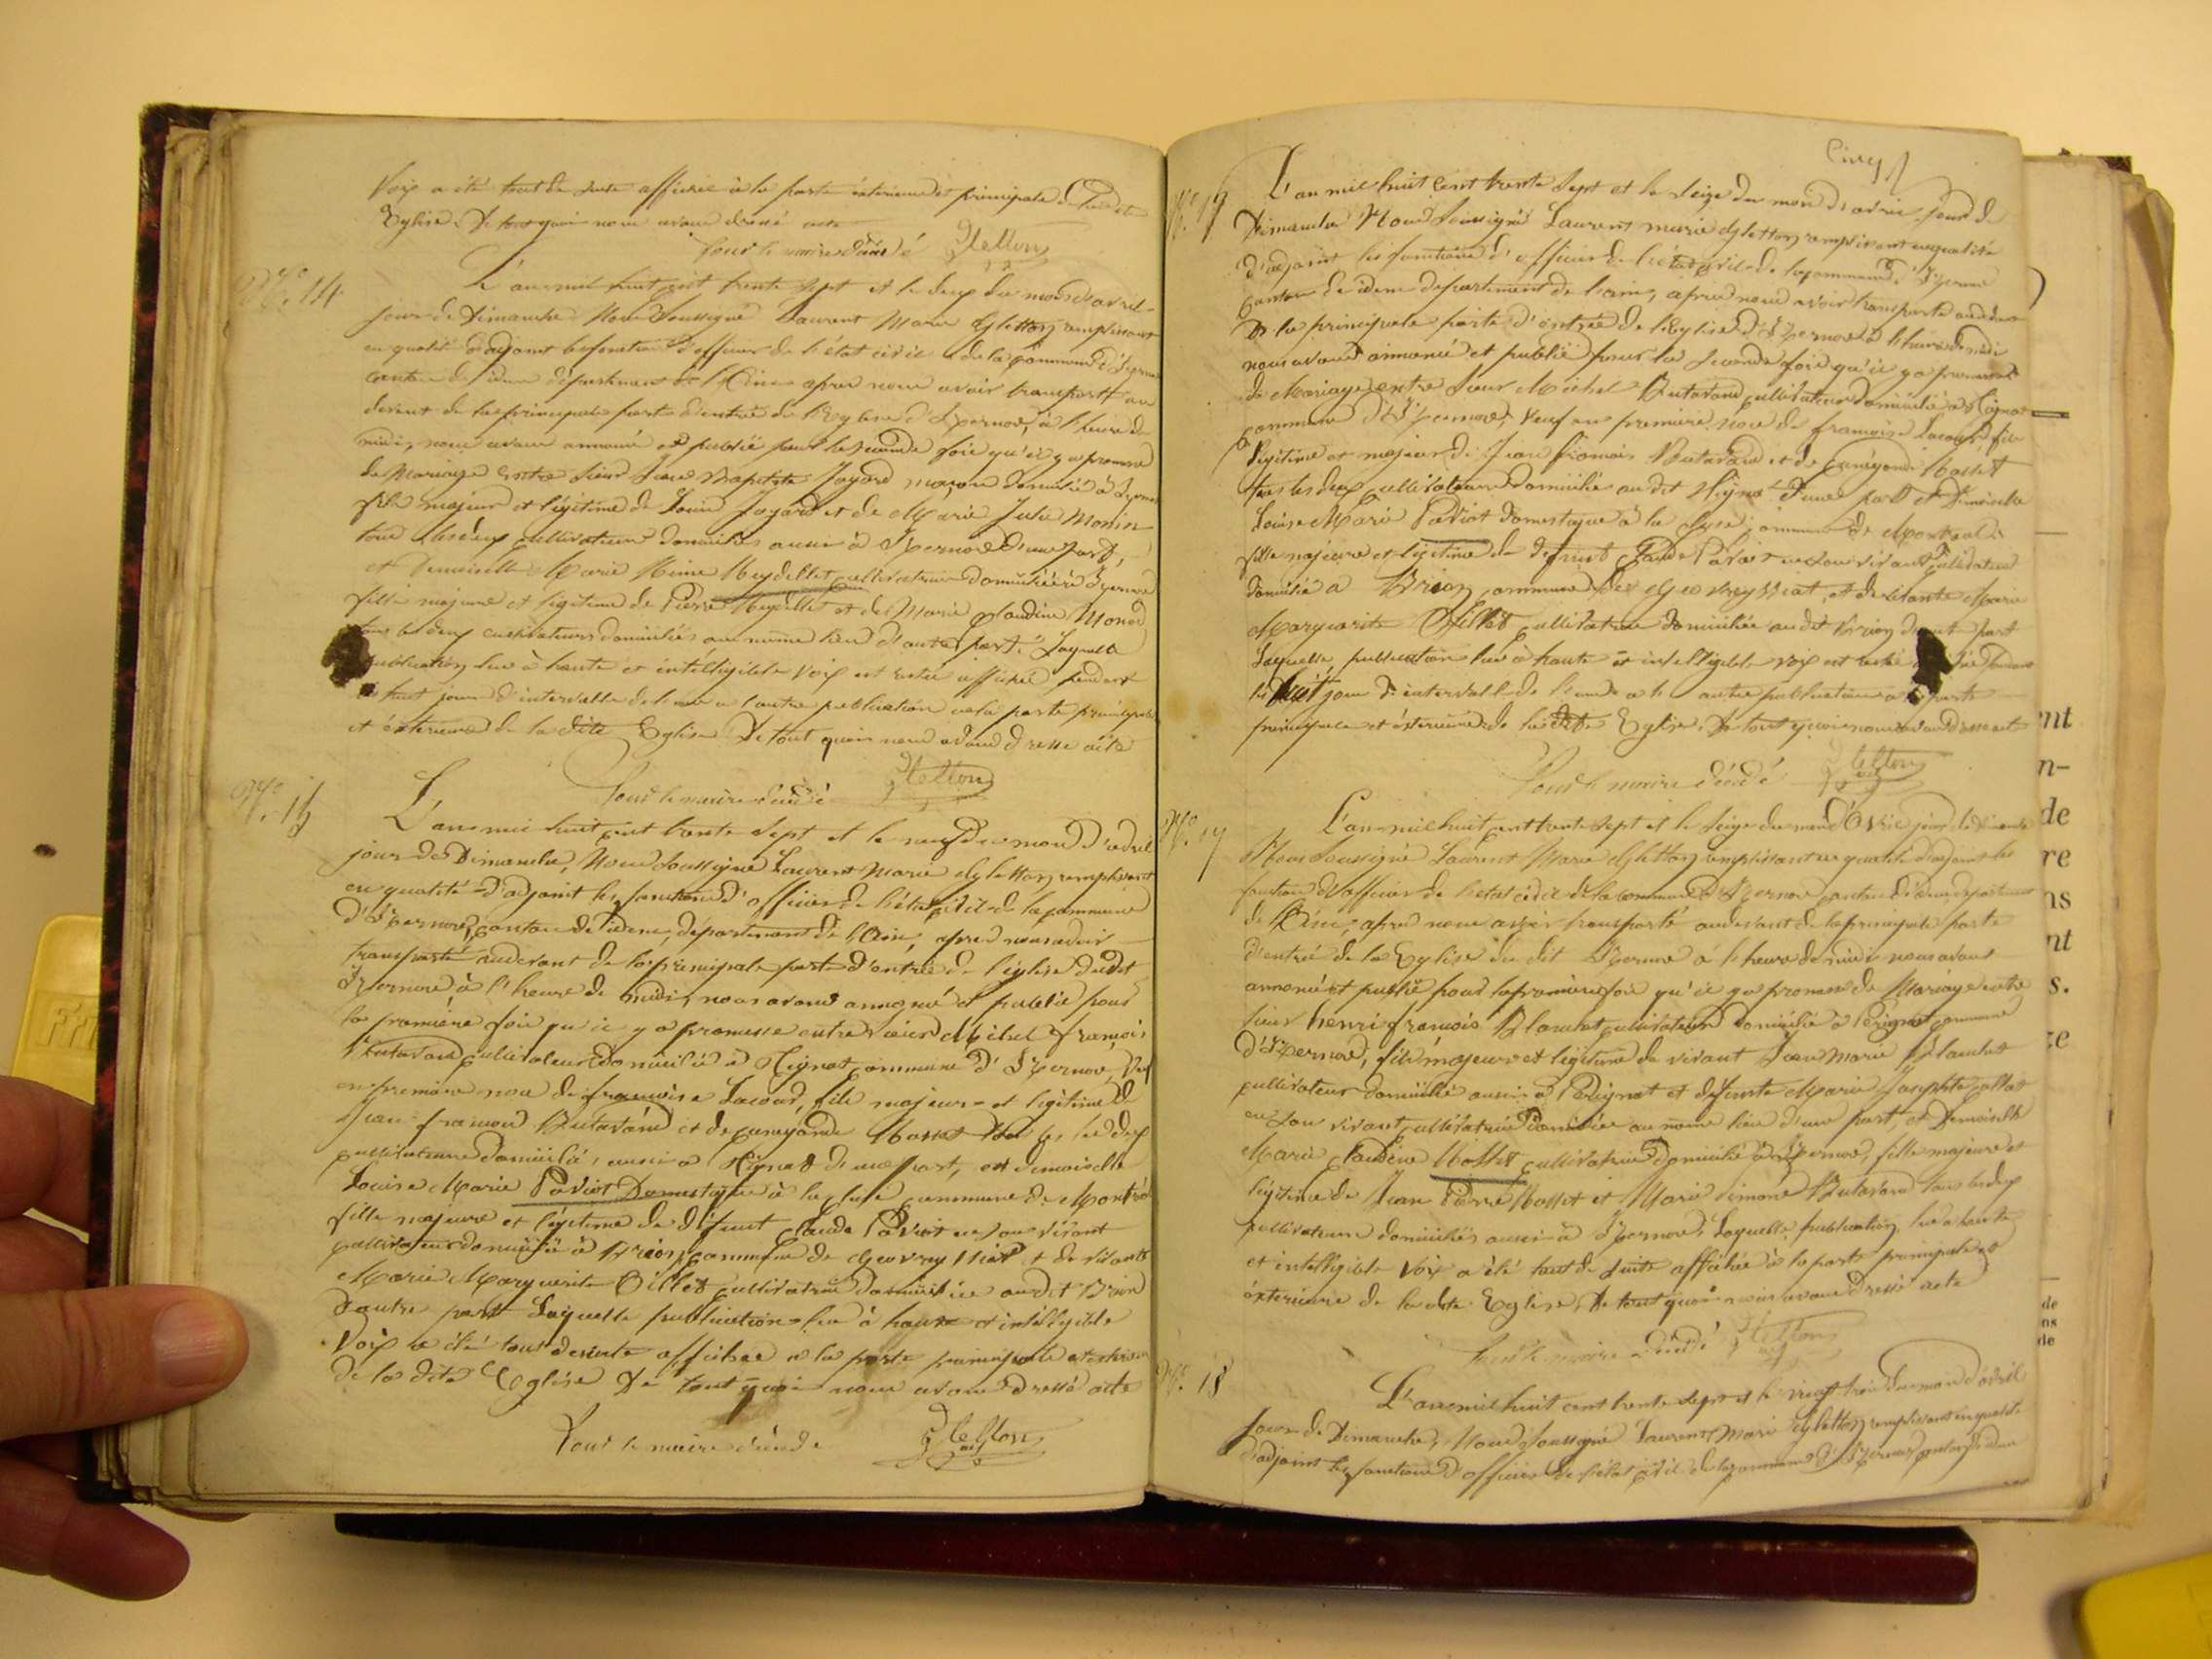 Voix a été tout de suite affichée à la porte extérieure et principale de la dite
Eglise. De tout quoi nous avons dressé acte
Pour le maire décédé Gletton
N.° 14 L'an mil huit cent trente sept et le deux du mois d'avril
jour de Dimanche Nous Soussigné Laurent Marie Gletton remplissant
en qualité d'adjoint les fonctions d'officier de l'état civil de la commune d'Izernore
canton de idem département de l'Ain après nous avoir transporté au
devant de la principale porte d'entrée de l'Eglise d'Izernore, à l'heure de
midi, nous avons annoncé et publié pour la seconde fois qu'il y a promesse
de Mariage entre Sieur Jean Baptiste Jagard maçon domicilié à Izernore
fils majeur et légitime de Louis Jagard et de Marie Julie Monin
tous les deux cultivateurs domiciliés aussi à Izernore d'une part,
et Demoiselle Marie Reydellet cultivatrice domiciliée à Izernore
fille majeure et légitime de Pierre Reydellet et de Marie Claudine Monod
tous les deux cultivateurs domiciliés au même lieu d'autre part. Laquelle
publication lue à haute et intelligible voix est restée affichée pendant
le huit jours d'intervalle de l'une à l'autre publication à la porte principale
et extérieure de la dite Eglise De tout quoi nous avons dressé acte
Pour le maire décédé Gletton
N.° 15 L'an mil huit cent trente sept et le neuf du mois d'avril
jour de Dimanche, Nous Soussigné Laurent Marie Gletton remplissant
en qualité d'adjoint les fonctions d'officier de l'état civil de la commune
d'Izernore, canton de idem, département de l'Ain, après nous avoir
transporté au devant de la principale porte d'entrée de l'église du dit
Izernore à l'heure de midi, nous avons annoncé et publié pour
la première fois qu'il y a promesse entre sieur Michel François
Butavand cultivateur domicilié à Tignat commune d'Izernore, Veuf
en première noce de françoise Lacour, fils majeur et légitime de
Jean françois Butavand et de Cunégonde Mosset tous les deux
cultivateurs domiciliés aussi à Tignat d'une part, et demoiselle
Louise Marie Paviot Domestique à la Cluse commune de Montréal
fille majeure et légitime de défunt Claude Paviot en son vivant
cultivateur domicilié à Brion commune de Geovreyssiat et de vivante
Marie Marguerite Billet cultivatrice domiciliée au dit Brion
d'autre part Laquelle publication lue à haute et intelligible
Voix a été tout de suite affichée à la porte principale et extérieure
de la dite Eglise De tout quoi nous avons dressé acte
Pour le maire décédé Gletton
Cinq
N.° 16 L'an mil huit Cent trente Sept et le Seize du mois d'avril jour de
Dimanche Nous Soussigné Laurent marie Gletton remplissant en qualité
d'adjoint les fonctions d'officier de l'état civil de la commune d'Izernore
canton de idem département de l'ain, après nous avoir transporté au devant
de la principale porte d'entrée de l'Eglise d'Izernore à l'heure de midi
nous avons annoncé et publié pour la seconde fois qu'il y a promesse
de Mariage entre Sieur Michel Butavand cultivateur domicilié à Tignat
commune d'Izernore, Veuf en première noce de françoise Lacour fils
légitime et majeur de Jean françois Butavand et de Cunégonde Mosset
tous les deux cultivateurs domiciliés au dit Tignat d'une part et Demoiselle
Louise Marie Paviot domestique à la Cluse commune de Montréal
fille majeure et légitime de défunt Claude Paviot en son vivant cultivateur
domicilié à Brion commune de Geovreyssiat, et de vivante Marie
Marguerite Billet cultivatrice domiciliée au dit Brion d'autre part
Laquelle publication lue à haute et intelligible voix est restée affichée pendant
les huit jours d'intervalle de l'une à l'autre publication à la porte
principale et extérieure de la dite Eglise. De tout quoi nous avons dressé acte
Pour le maire décédé Gletton
N.° 17 L'an mil huit cent trente sept et le Seize du mois d'Avril jour de Dimanche
Nous Soussigné Laurent Marie Gletton remplissant en qualité d'adjoint les
fonctions d'officier de l'état civil de la commune d'Izernore canton d'idem département
de l'Ain, après nous avoir transporté au devant de la principale porte
d'entrée de la Eglise du dit Izernore à l'heure de midi nous avons
annoncé et publié pour la première fois qu'il y a promesse de Mariage entre
sieur henri françois Blanchet cultivateur domicilié à Perignat commune
d'Izernore, fils majeur et légitime de vivant Jean Marie Blanchet
cultivateur domicilié aussi à Perignat et défunte Marie Josephte
en son vivant cultivatrice domiciliée au même lieu d'une part, et Demoiselle
Marie Claudine Mosset cultivatrice domiciliée à Izernore, fille majeure et
légitime de Jean Pierre Mosset et Marie Simone Butavand tous les deux
cultivateurs domiciliés aussi à Izernore, Laquelle publication lue à haute
et intelligible Voix a été tout de suite affichée à la porte principale et
extérieure de la dite Eglise, De tout quoi nous avons dressé acte
Pour le maire décédé Gletton
N.° 18 L'an mil huit cent trente sept et le vingt trois du mois d'avril
jour de Dimanche, Nous Soussigné Laurent Marie Gletton remplissant en qualité
d'adjoint les fonctions d'officier de l'état civil de la commune d'Izernore canton d'idem
nt
n-
de
re
ns
nt
s.
te
de
ns
de